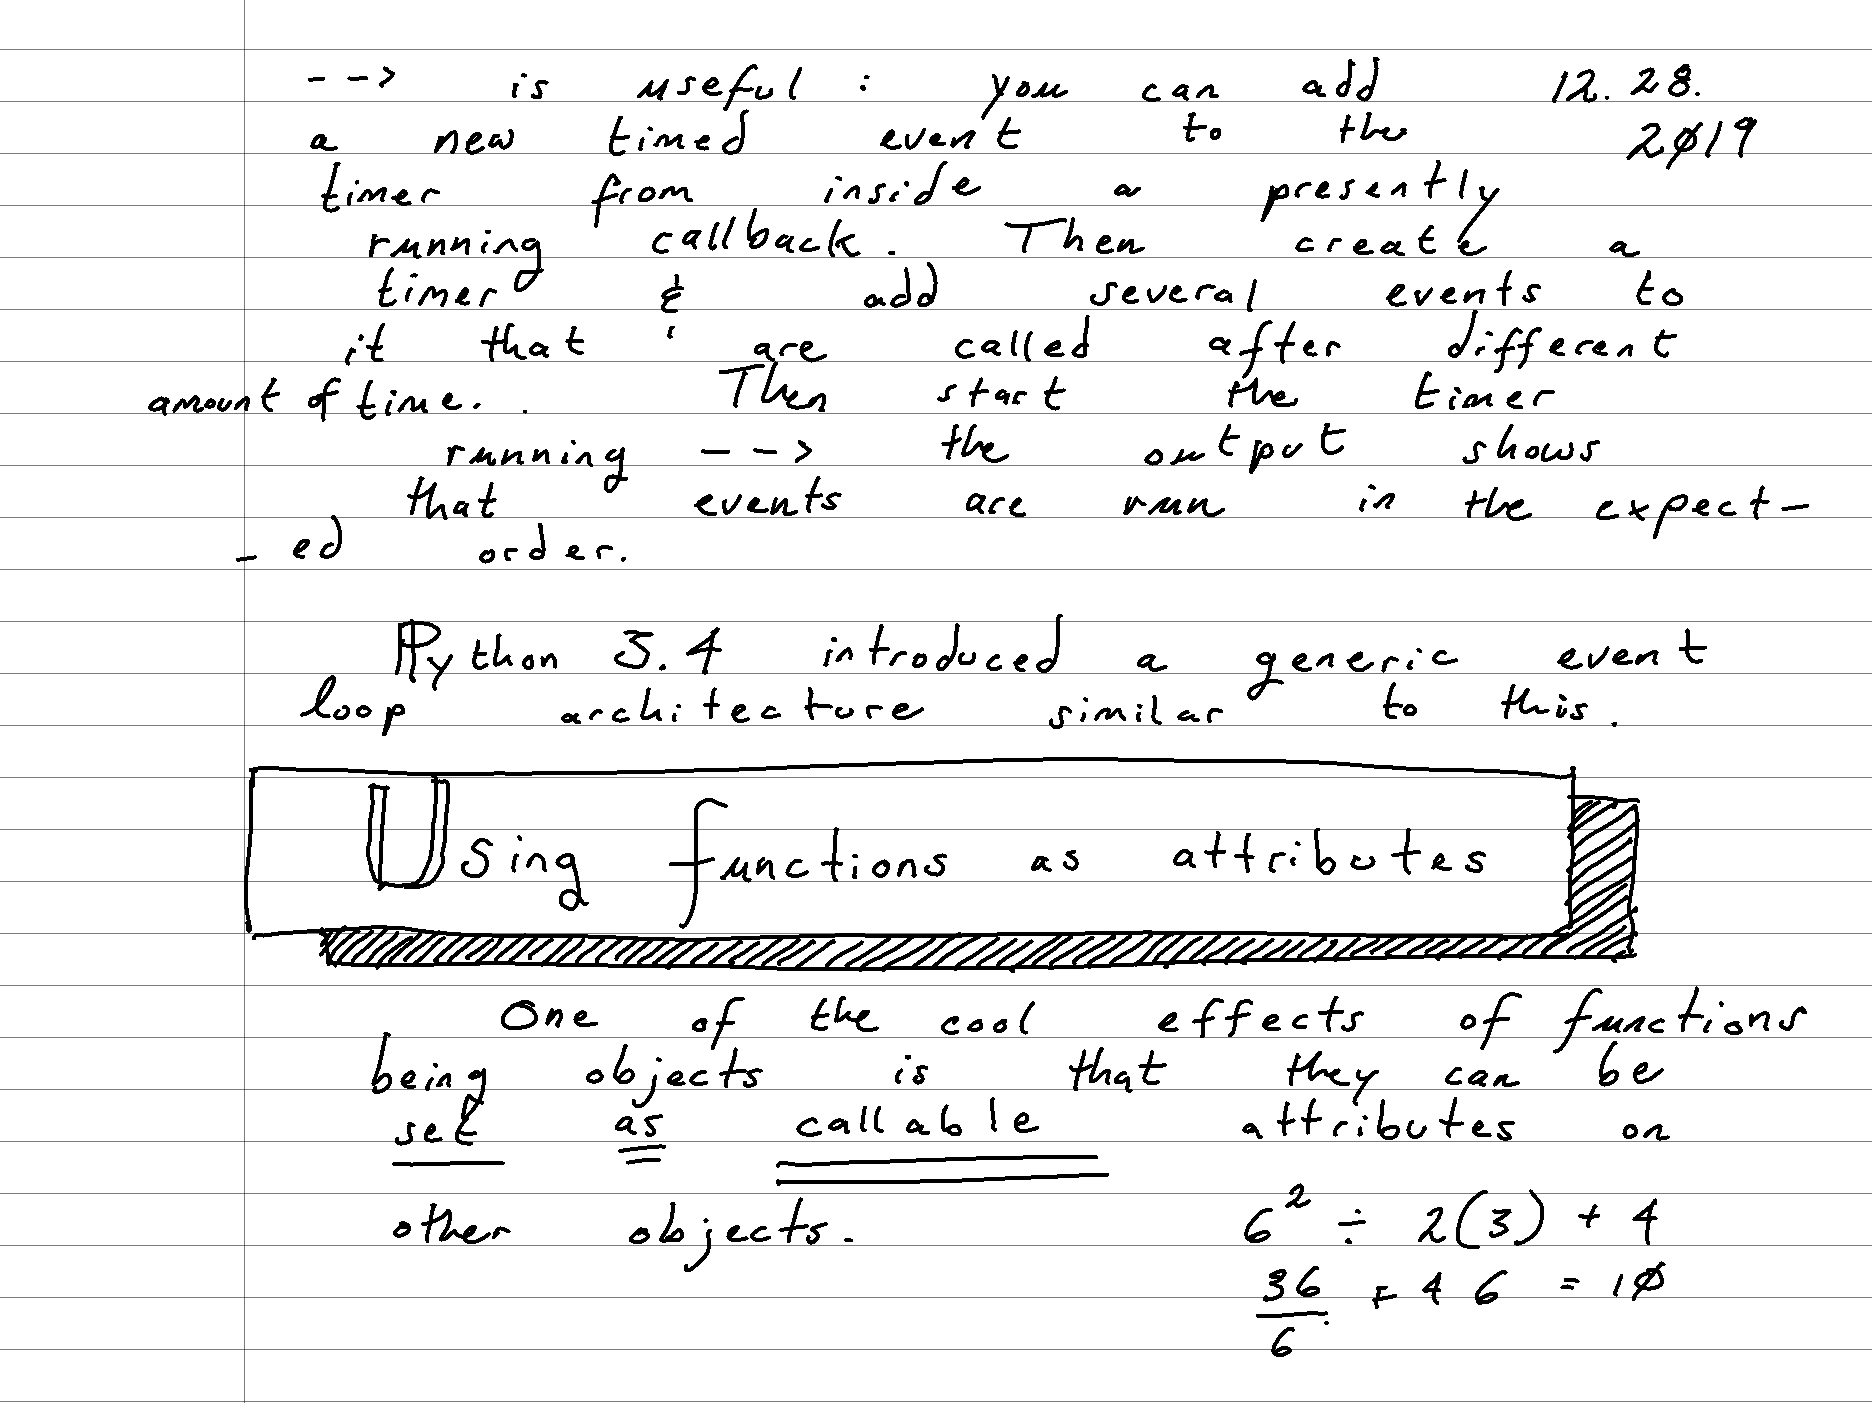 --> is useful : you can add 12. 28.
a new timed event to the 2019
timer from inside a presently
running callback. Then create a
timer & add several events to
it that are called after different
amount of time. Then start the timer
running --> the output shows
that events are run in the expect-
- ed order.
Python 3.4 introduced a generic event
loop architecture similar to this.
Using functions as attributes
One of the cool effects of functions
being objects is that they can be
set as callable attributes on
other objects. 6² ÷ 2(3) + 4
36/6 + 4 6 = 10